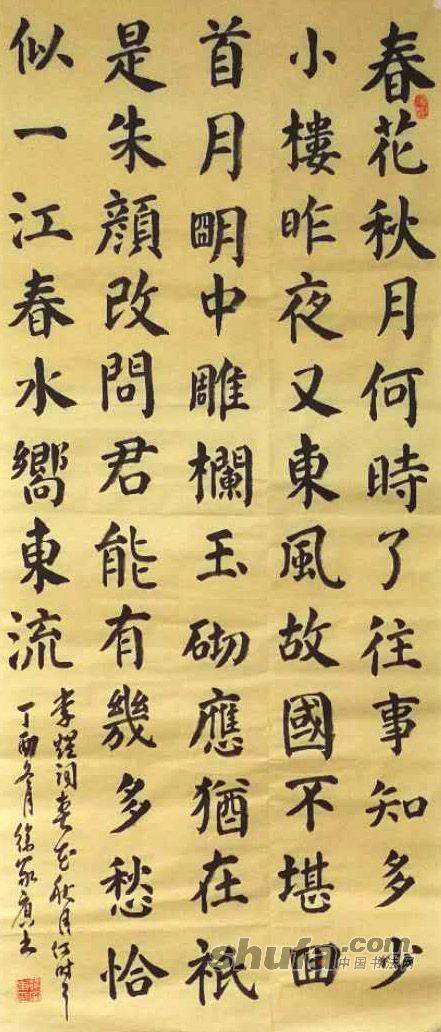 春花秋月何時了往事知多少
小樓昨夜又東風故國不堪回
首月朙中雕欄玉砌應猶在祇
是朱顔改問君能有幾多愁恰
似一江春水嚮東流
李煜词春花秋月何时了
丁酉冬月
shufa.com
中国书法网